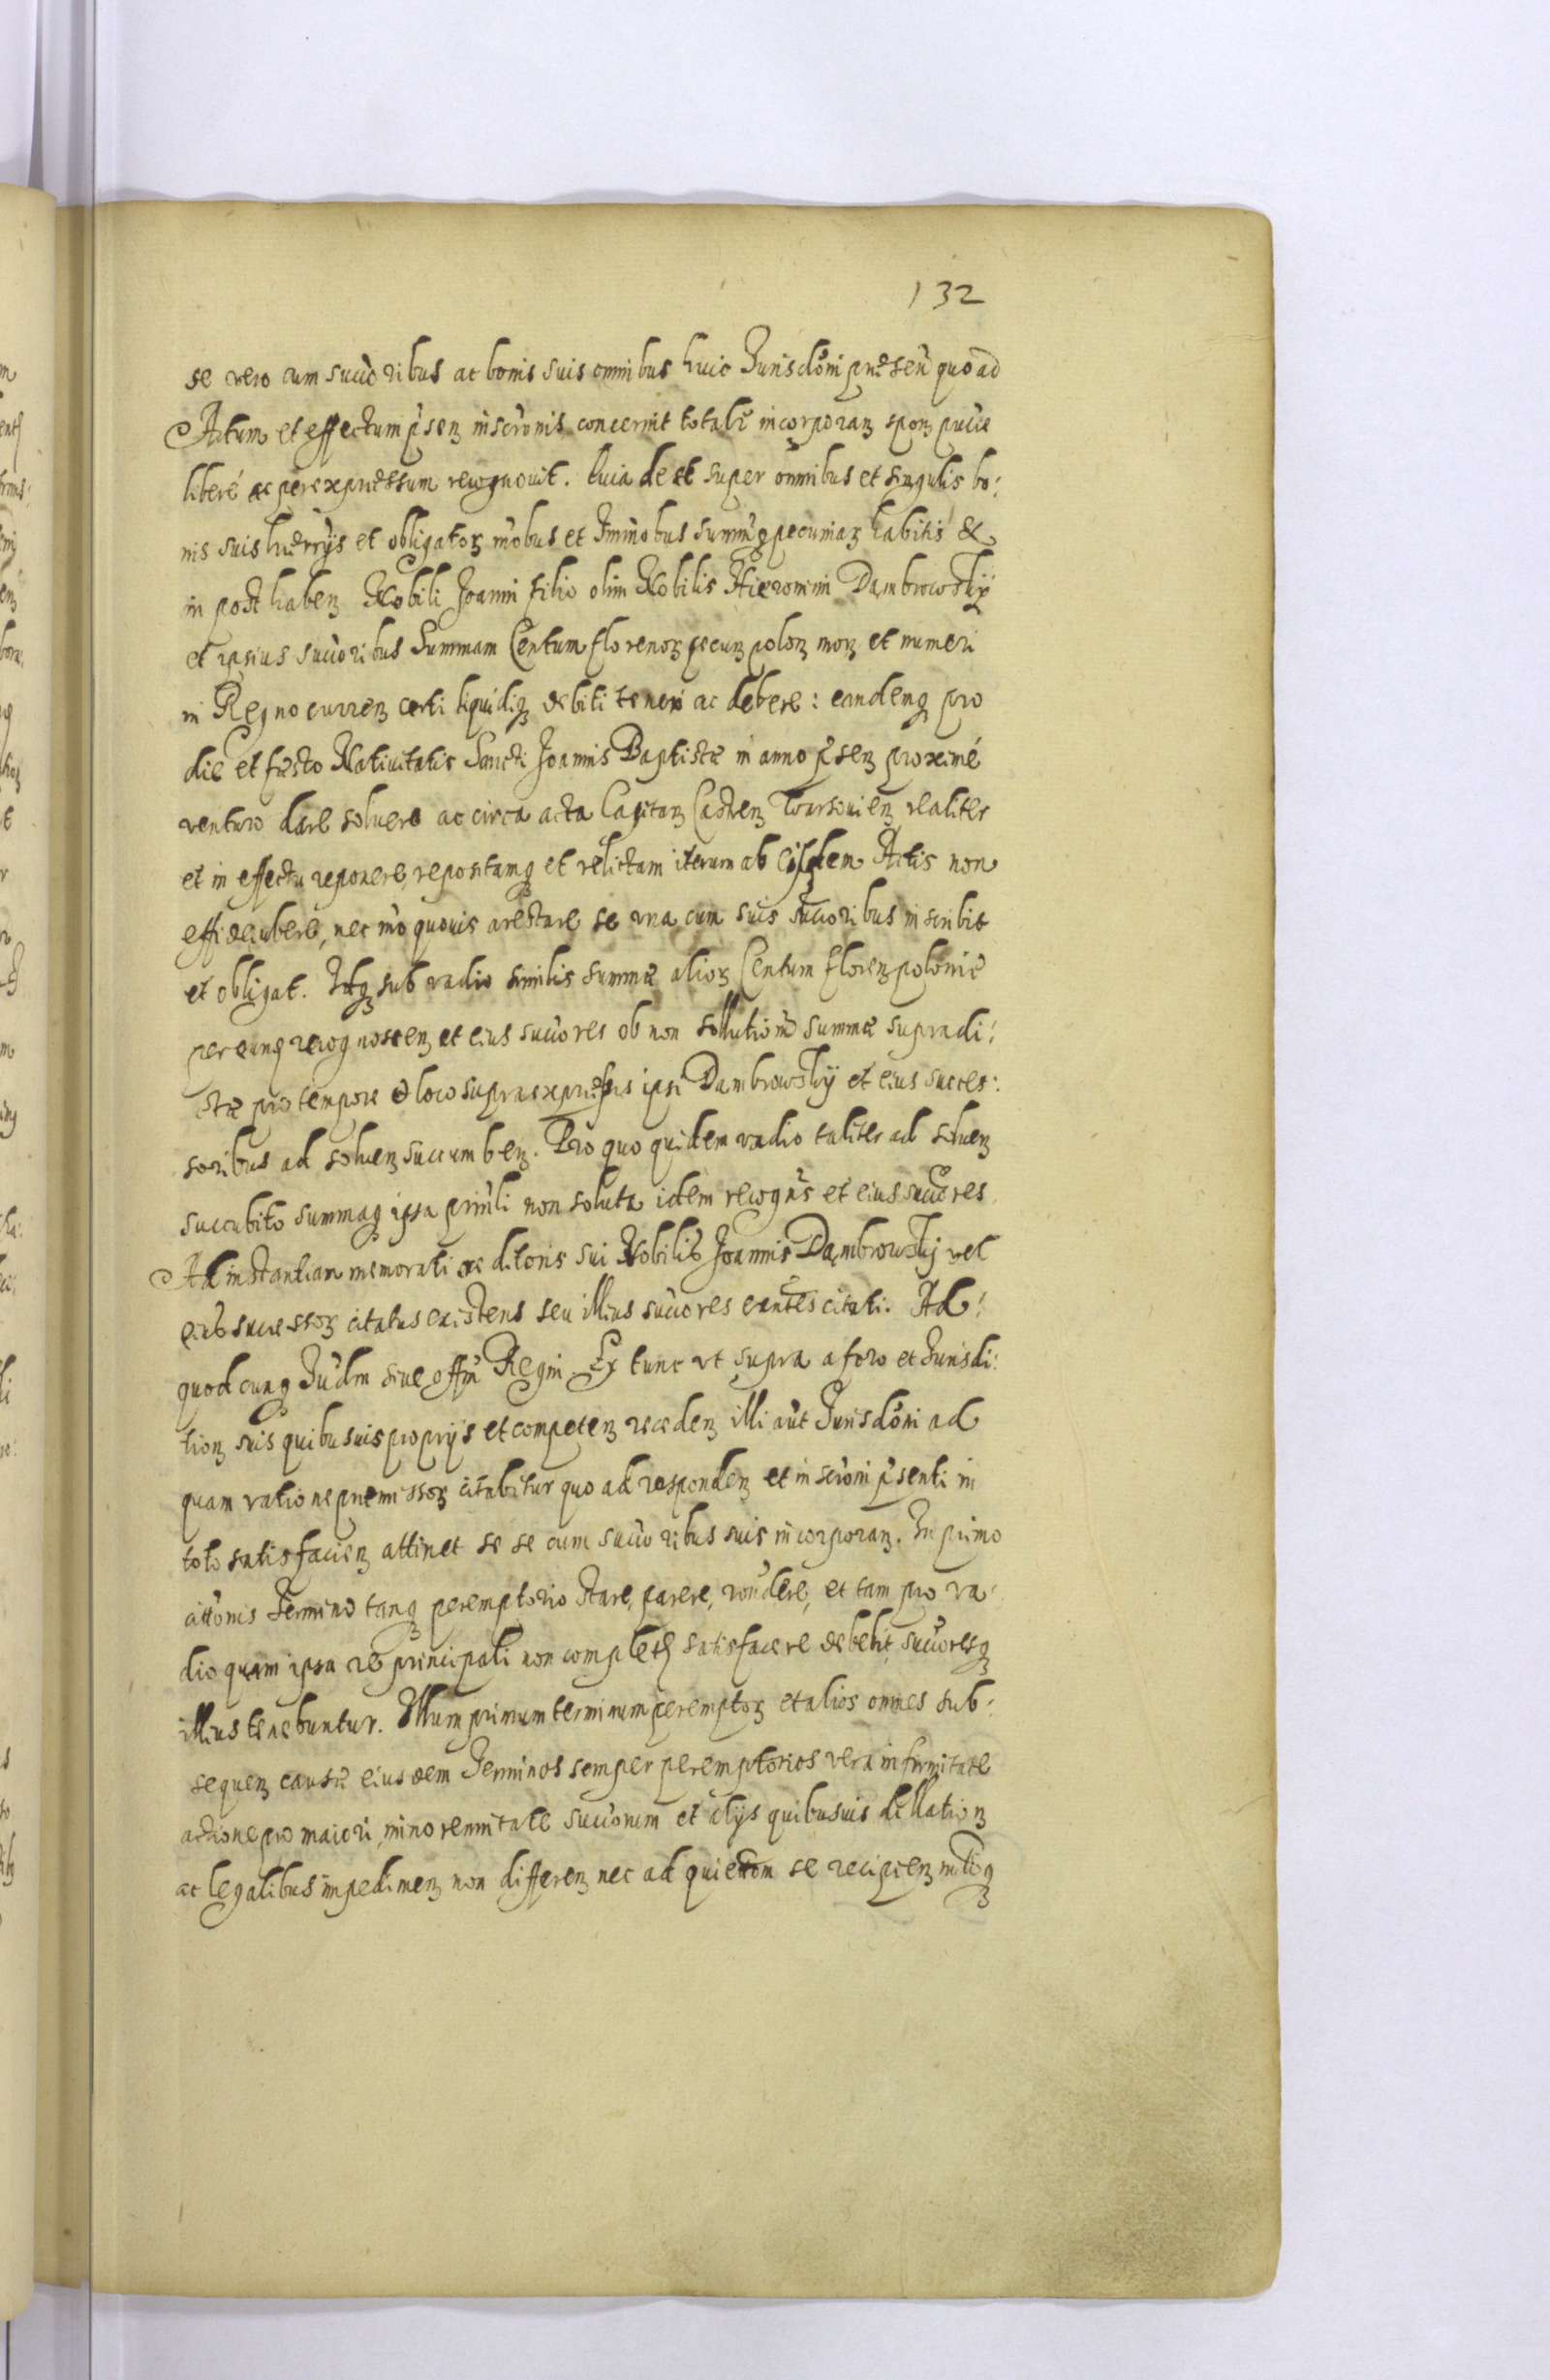 132
se vero cum succoribus ac bonis suis omnibus huic Jurisdoni præsen quoad
Actum et effectum psenʒ inscronis concernit totalr incorporanʒ sponʒ pucce
liberé ac per expressum recognouit. Quia de et super omnibus et singulis bo:
nis suis hærrijs et obligatorʒ mobus et Immobus summisqʒ pecuniarʒ habitis &
in post habenʒ Nobili Joanni filio olim Nobilis Hieronimi Dąmbrowskÿ
et ipsius succoribus Summam Centum florenorʒ pecunʒ polonʒ monʒ et numeri
in Regno currenʒ certi liquidiqʒ debiti teneri ac debere : eandemqʒ pro
die et festo Natiuitatis Sancti Joannis Baptistæ in anno psenʒ proximé
venturo dare soluere ac circa acta Capitanʒ Castrenʒ Warsouienʒ realiter
et in effectu reponere, repositamqʒ et relictam iterum ab eisdem Actis non
, nec mo quouis arestare se vna cum suis succoribus inscribit
et obligat. Idqʒ sub vadio similis summæ aliorʒ Centum florenʒ polonic
per eumqʒ recognoscenʒ et eius succores ob non sollutiom summæ supradi:
ctæ pro tempore & loco supraexpressis ipsi Dambrowskÿ et eius succes:
soribus ad soluenʒ succumbenʒ. Pro quo quidem vadio taliter ad soluenʒ
succubito summaqʒ ipsa prinli non soluta idem recogns et eius succores
Ad instantiam memorati creditoris sui Nobilis Joannis Dąmbrowskÿ vel
eius successorʒ citatus existens seu illius succores exntes citati. Ad:
quodcunqʒ Judm siue offm Regni Ex tunc vt supra a foro et Jurisdi:
tionʒ suis quibusuis proprijs et competenʒ recedenʒ illi aut Jurisdoni ad
quam ratione præmissorʒ citabitur quo ad respondenʒ et inscroni psenti in
toto satisfacienʒ attinet se se cum succoribus suis incorporanʒ. In primo
citonis Termino tanqʒ peremptorio stare, parere, rondere, et tam pro va:
dio quam ipsa re principali non complet satisfacere debebit, succoresqʒ
illius tenebuntur. Illum primum terminum peremptorʒ et alios omnes sub:
sequenʒ causæ eiusdem Terminos semper peremptorios vera infirmitate
actione pro maiori, minorennitate succorum et alijs quibusuis dillationʒ
ac legalibus impedimenʒ non differenʒ nec ad quietom se recipienʒ